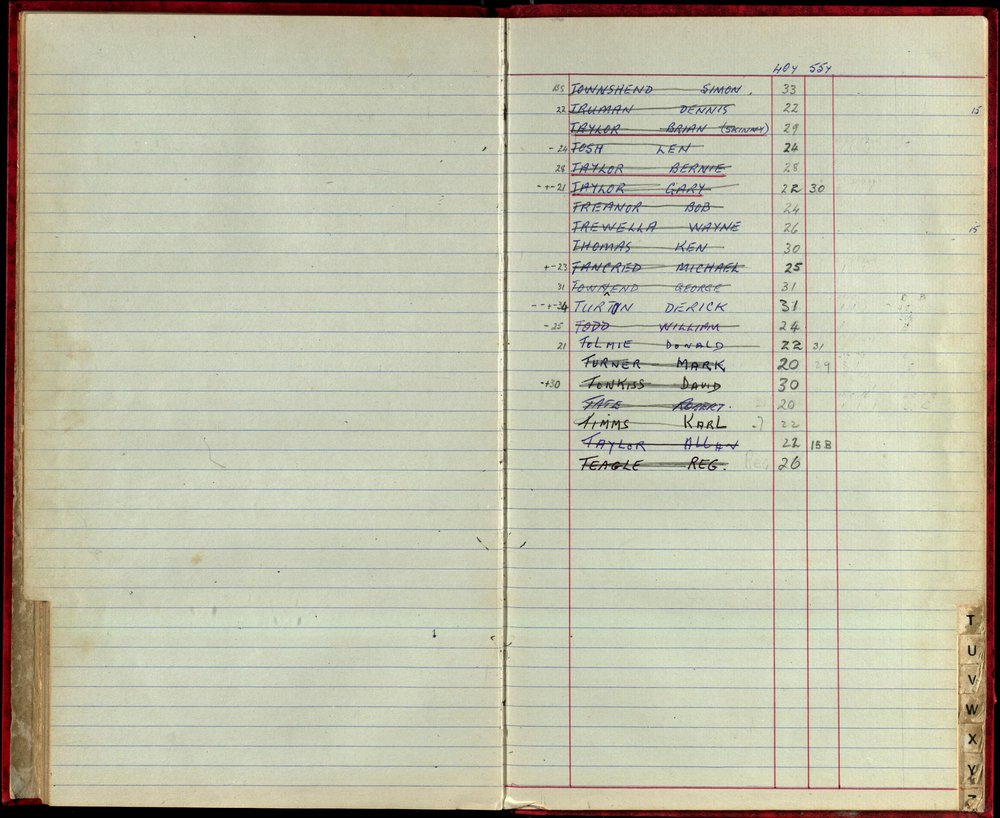 40Y 55Y
135 TOWNSHEND SIMON . 33
22 TRUMAN DENNIS 22 15
TAYLOR BRIAN (SKINNY) 29
- 24 TOSH LEN 24
28 TAYLOR BERNIE 28
-+-21 TAYLOR GARY 22 30
TREANOR BOB 24
TREWELLA WAYNE 26 15
THOMAS KEN 30
+-23 TANCRED MICHAEL 25
31 TOWNEND GEORGE 31
--+-34 TURTON DERICK 31
- 25 TODD WILLIAM 24
21 TOLMIE DONALD 22 31
TURNER MARK 20 29
-+30 TONKISS DAVID 30
TATE ROBERT. 20
TIMMS KARL 22
TAYLOR ALLAN 22 15B
TEAGLE REG. Reg 26
T
U
V
W
X
Y
Z